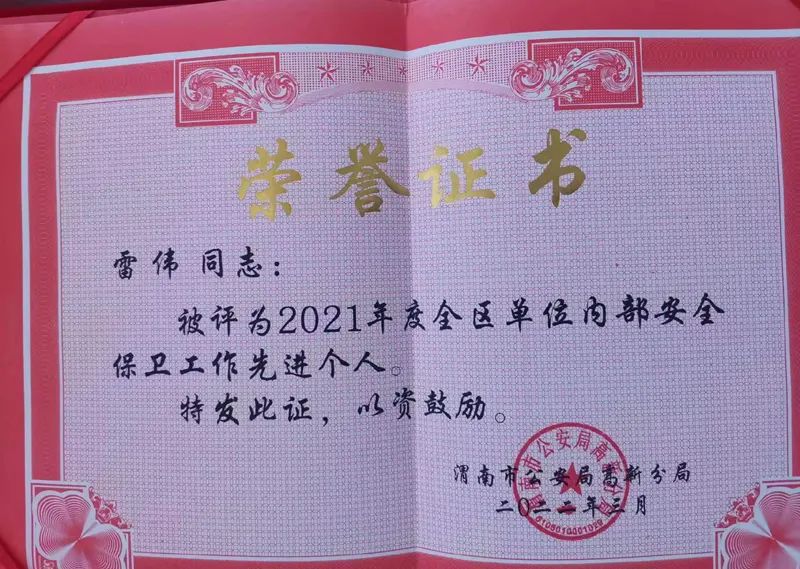 荣誉证书
雷伟 同志：
被评为2021年度全区单位内部安全
保卫工作先进个人。
特发此证，以资鼓励。
渭南市公安局高新分局
二〇二二年三月
渭南市公安局高新分局
6105010001029